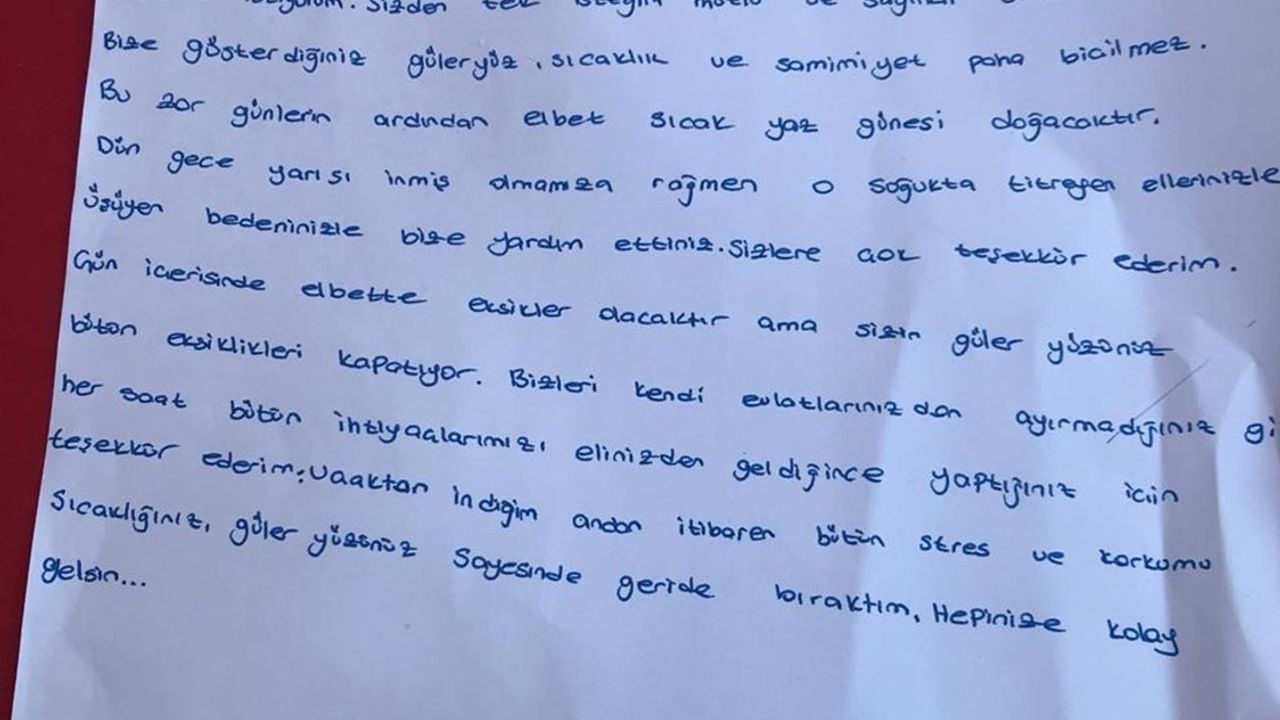 Sizden tek isteğim mutlu ve
Bize gösterdiğiniz güleryüz, sıcaklık ve samimiyet paha bicilmez.
Bu zor günlerin ardından elbet sıcak yaz günesi doğacaktır.
Dün gece yarısı inmiş olmamıza rağmen o soğukta titreyen ellerinizle
üşüyen bedeninizle bize yardım ettiniz. Sizlere çok teşekkür ederim.
Gün icerisinde elbette eksikler olacaktır ama sizin güler yüzünüz
bütün eksiklikleri kapatıyor. Bizleri kendi evlatlarınızdan ayırmadığınız gi
her saat bütün ihtiyaçlarımızı elinizden geldiğince yaptığınız için
teşekkür ederim. Uçaktan indiğim andan itibaren bütün stres ve korkumu
Sıcaklığınız, güler yüzünüz sayesinde geride bıraktım. Hepinize kolay
gelsin...